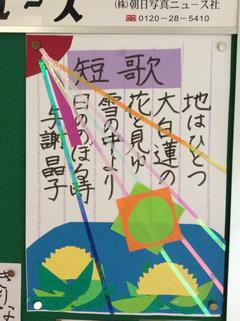 ュース
(株)朝日写真ニュース社
☎0120-28-5410
短歌
地はひとつ
大白蓮の
花と見ゆ
雪の中より
日ののぼる時
与謝晶子